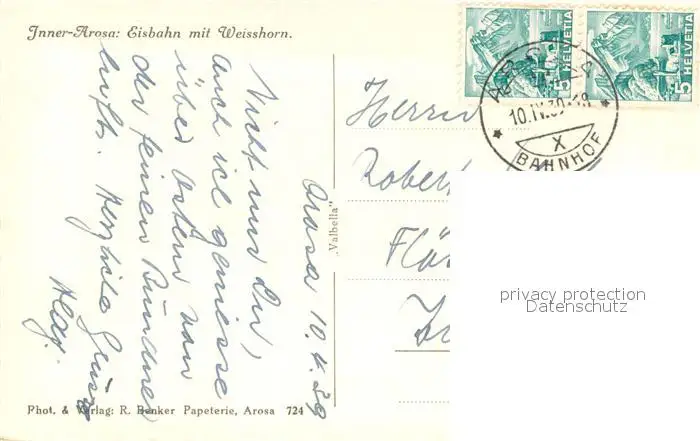 Inner-Arosa: Eisbahn mit Weisshorn.
Arosa 10.4.39
Nicht nur Du,
auch ich geniesse
über Ostern von
der feinen Bündner
luft. Herzliche Grüsse
HELVETIA 5
HELVETIA 5
AROSA
10.IV.39-18
X
BAHNHOF
Herrn
Robert
"Valbella"
privacy protection
Datenschutz
Phot. & Verlag: R. Benker Papeterie, Arosa 724